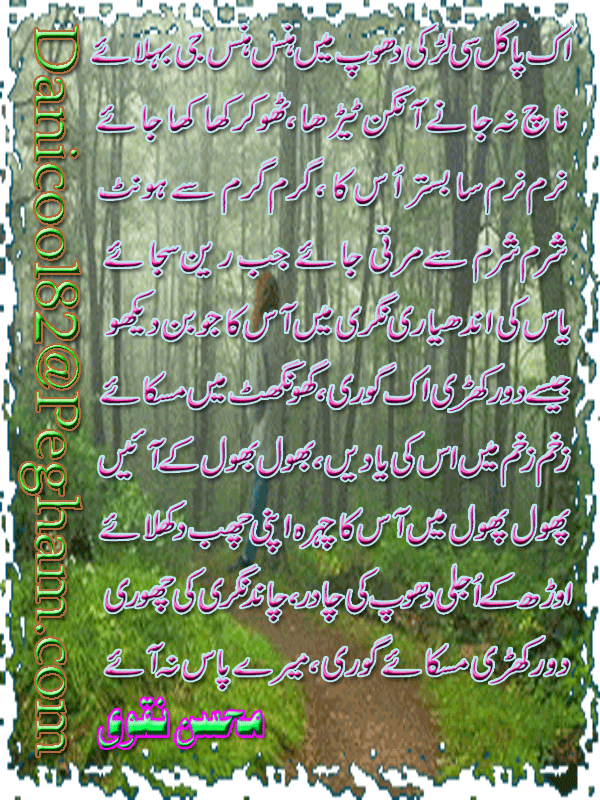 اک پاگل سی لڑکی دھوپ میں ہنس ہنس جی بہلائے
ناچ نہ جانے آنگن ٹیڑھا، ٹھوکر کھا کھا جائے
نرم نرم سا بستر اُس کا، گرم گرم سے ہونٹ
شرم شرم سے مرتی جائے جب رین سجائے
یاس کی اندھیاری نگری میں آس کا جوبن دیکھو
جیسے دور کھڑی اک گوری، گھونگھٹ میں مسکائے
زخم زخم میں اس کی یادیں، بھول بھول کے آئیں
پھول پھول میں آس کا چہرہ اپنی چھب دکھلائے
اوڑھ کے اُجلی دھوپ کی چادر، چاند نگری کی چھوری
دور کھڑی مسکائے گوری، میرے پاس نہ آئے
محسن نقوی
Danicool82@Pegham.com